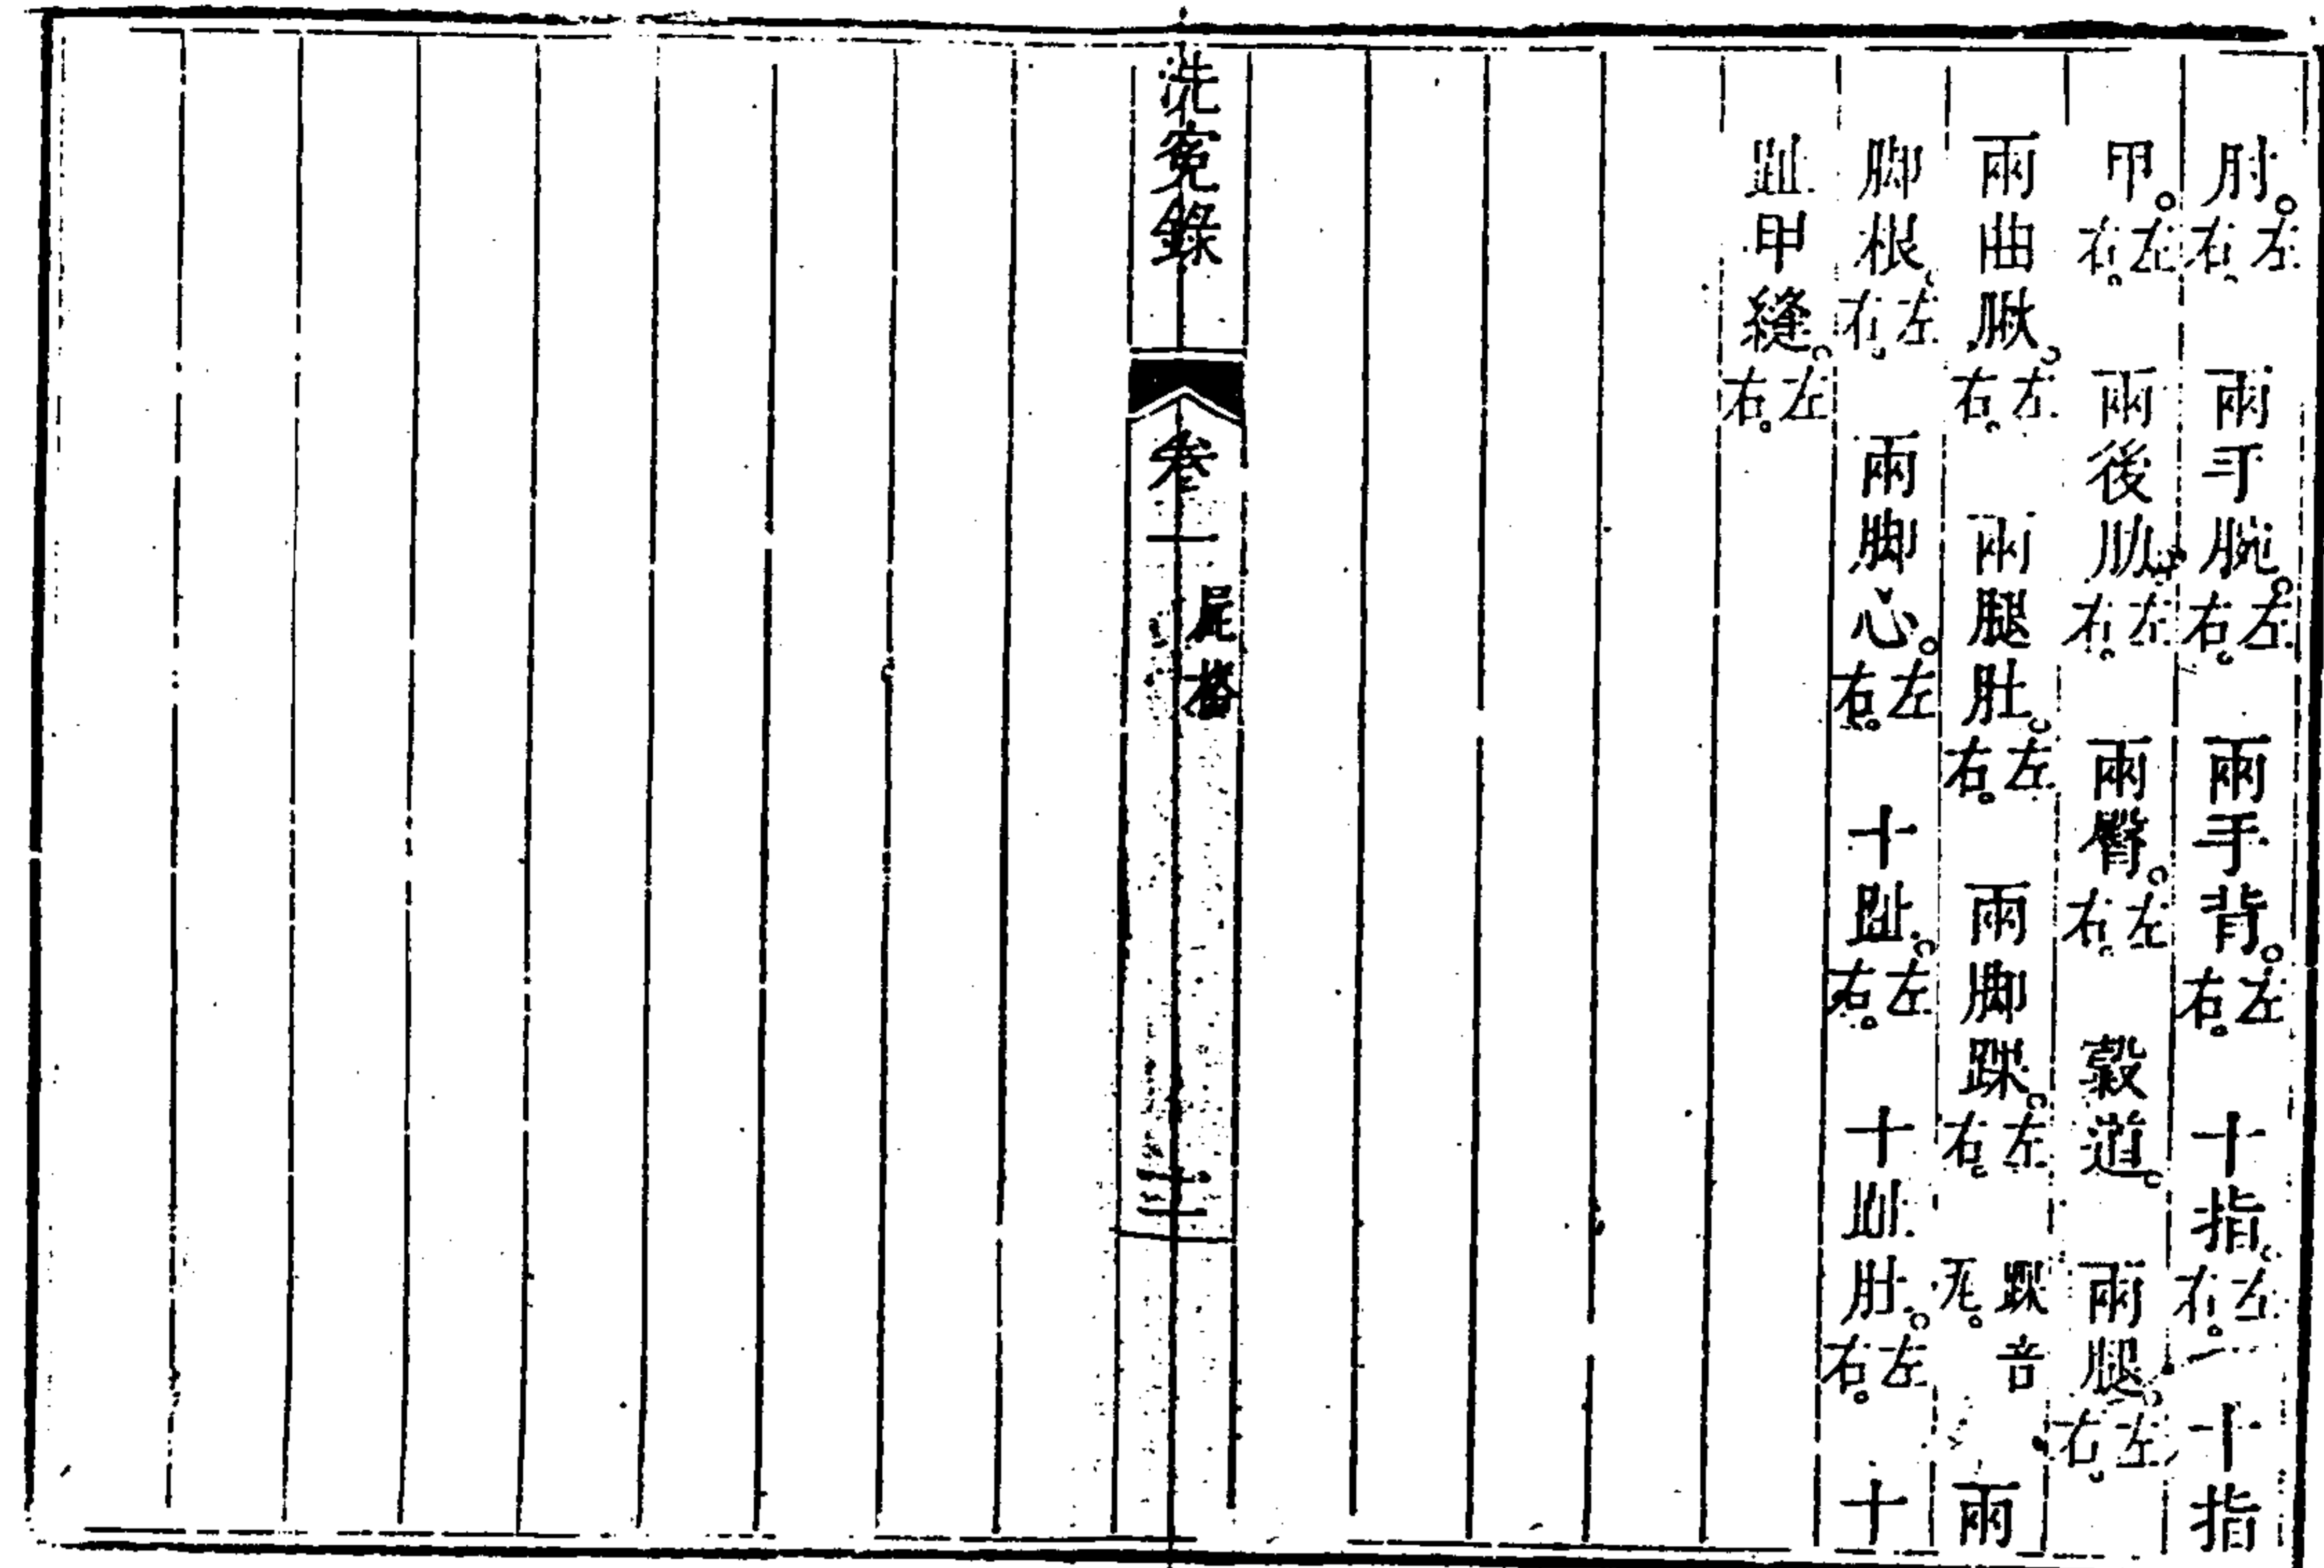 肘。左右。 兩手腕。左右。 兩手背。左右。 十指。左右。 十指
甲。左右。 兩後肋。左右。 兩臀。左右。 穀道。 兩腿。左右。
兩曲䐐。左右。 兩腿肚。左右。 兩脚踝。左右。 踝音瓦。 兩
脚根。左右。 兩脚心。左右。 十趾。左右。 十趾肚。左右。 十
趾甲縫。左右。
洗寃錄 卷一 尸格 三